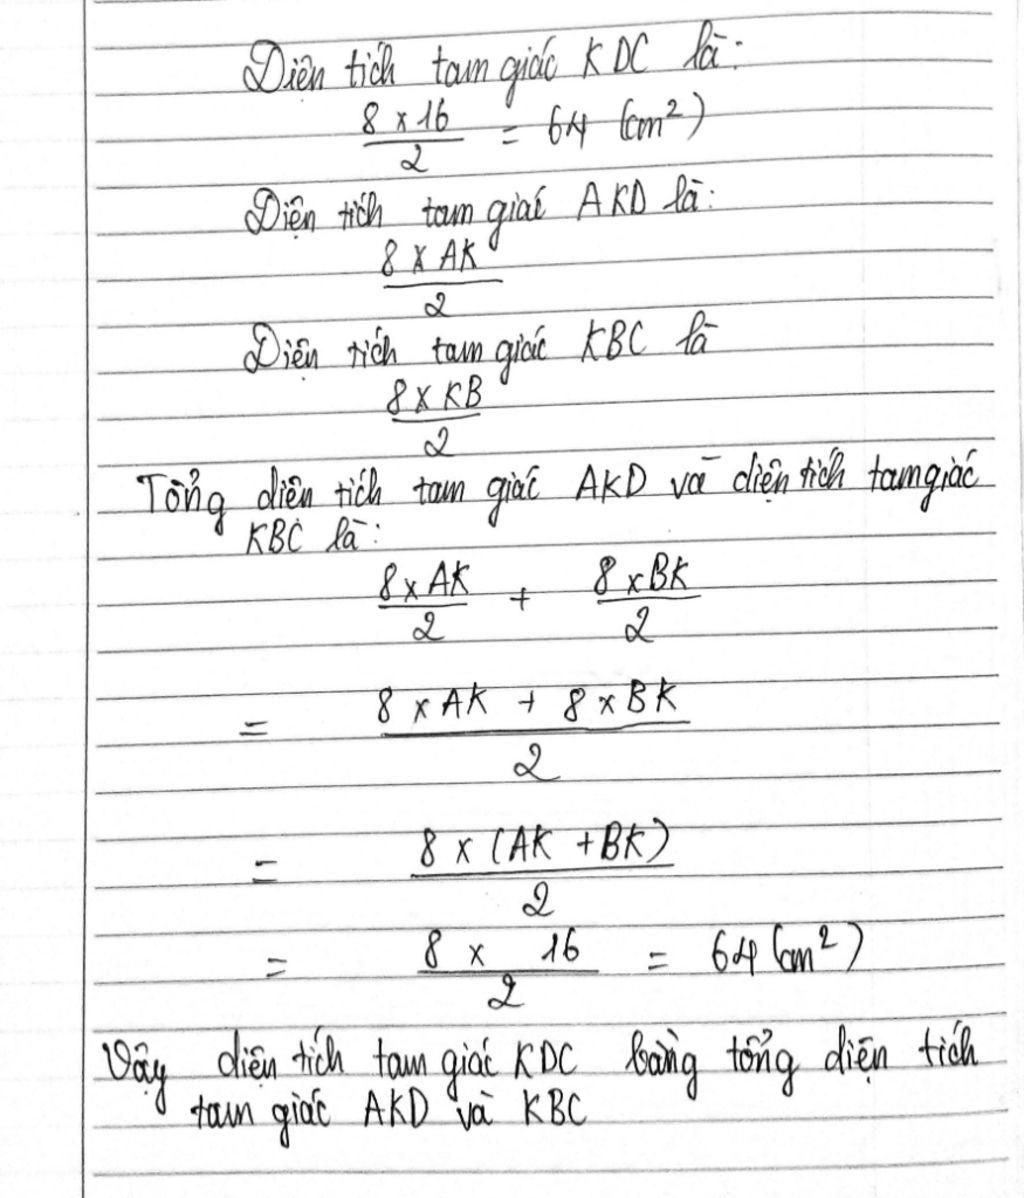 Diện tích tam giác KDC là:
8 x 16 / 2 = 64 (cm²)
Diện tích tam giác AKD là:
8 x AK / 2
Diện tích tam giác KBC là
8 x KB / 2
Tổng diện tích tam giác AKD và diện tích tam giác
KBC là:
8 x AK / 2 + 8 x BK / 2
= 8 x AK + 8 x BK / 2
= 8 x (AK + BK) / 2
= 8 x 16 / 2 = 64 (cm²)
Vậy diện tích tam giác KDC bằng tổng diện tích
tam giác AKD và KBC